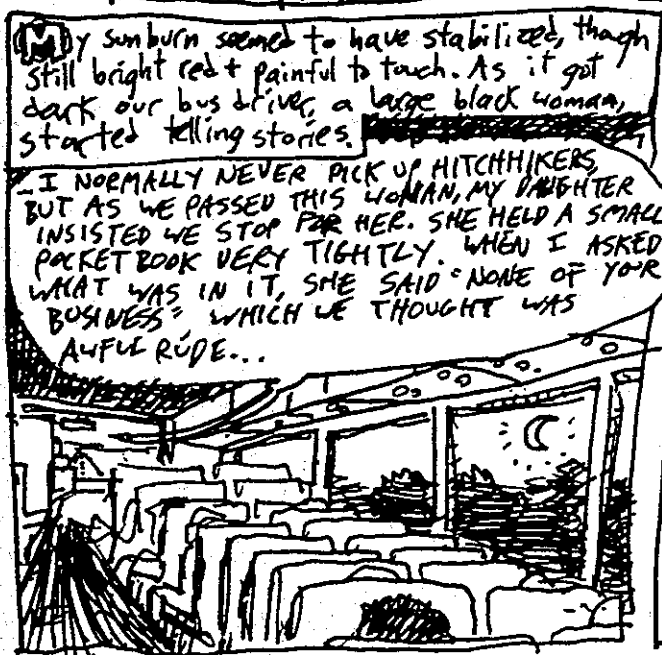 My sunburn seemed to have stabilized, though
still bright red + painful to touch. As it got
dark our bus driver, a large black woman,
started telling stories.
_I NORMALLY NEVER PICK UP HITCHHIKERS,
BUT AS WE PASSED THIS WOMAN, MY DAUGHTER
INSISTED WE STOP FOR HER. SHE HELD A SMALL
POCKETBOOK VERY TIGHTLY. WHEN I ASKED
WHAT WAS IN IT, SHE SAID "NONE OF YOUR
BUSINESS", WHICH WE THOUGHT WAS
AWFUL RUDE...